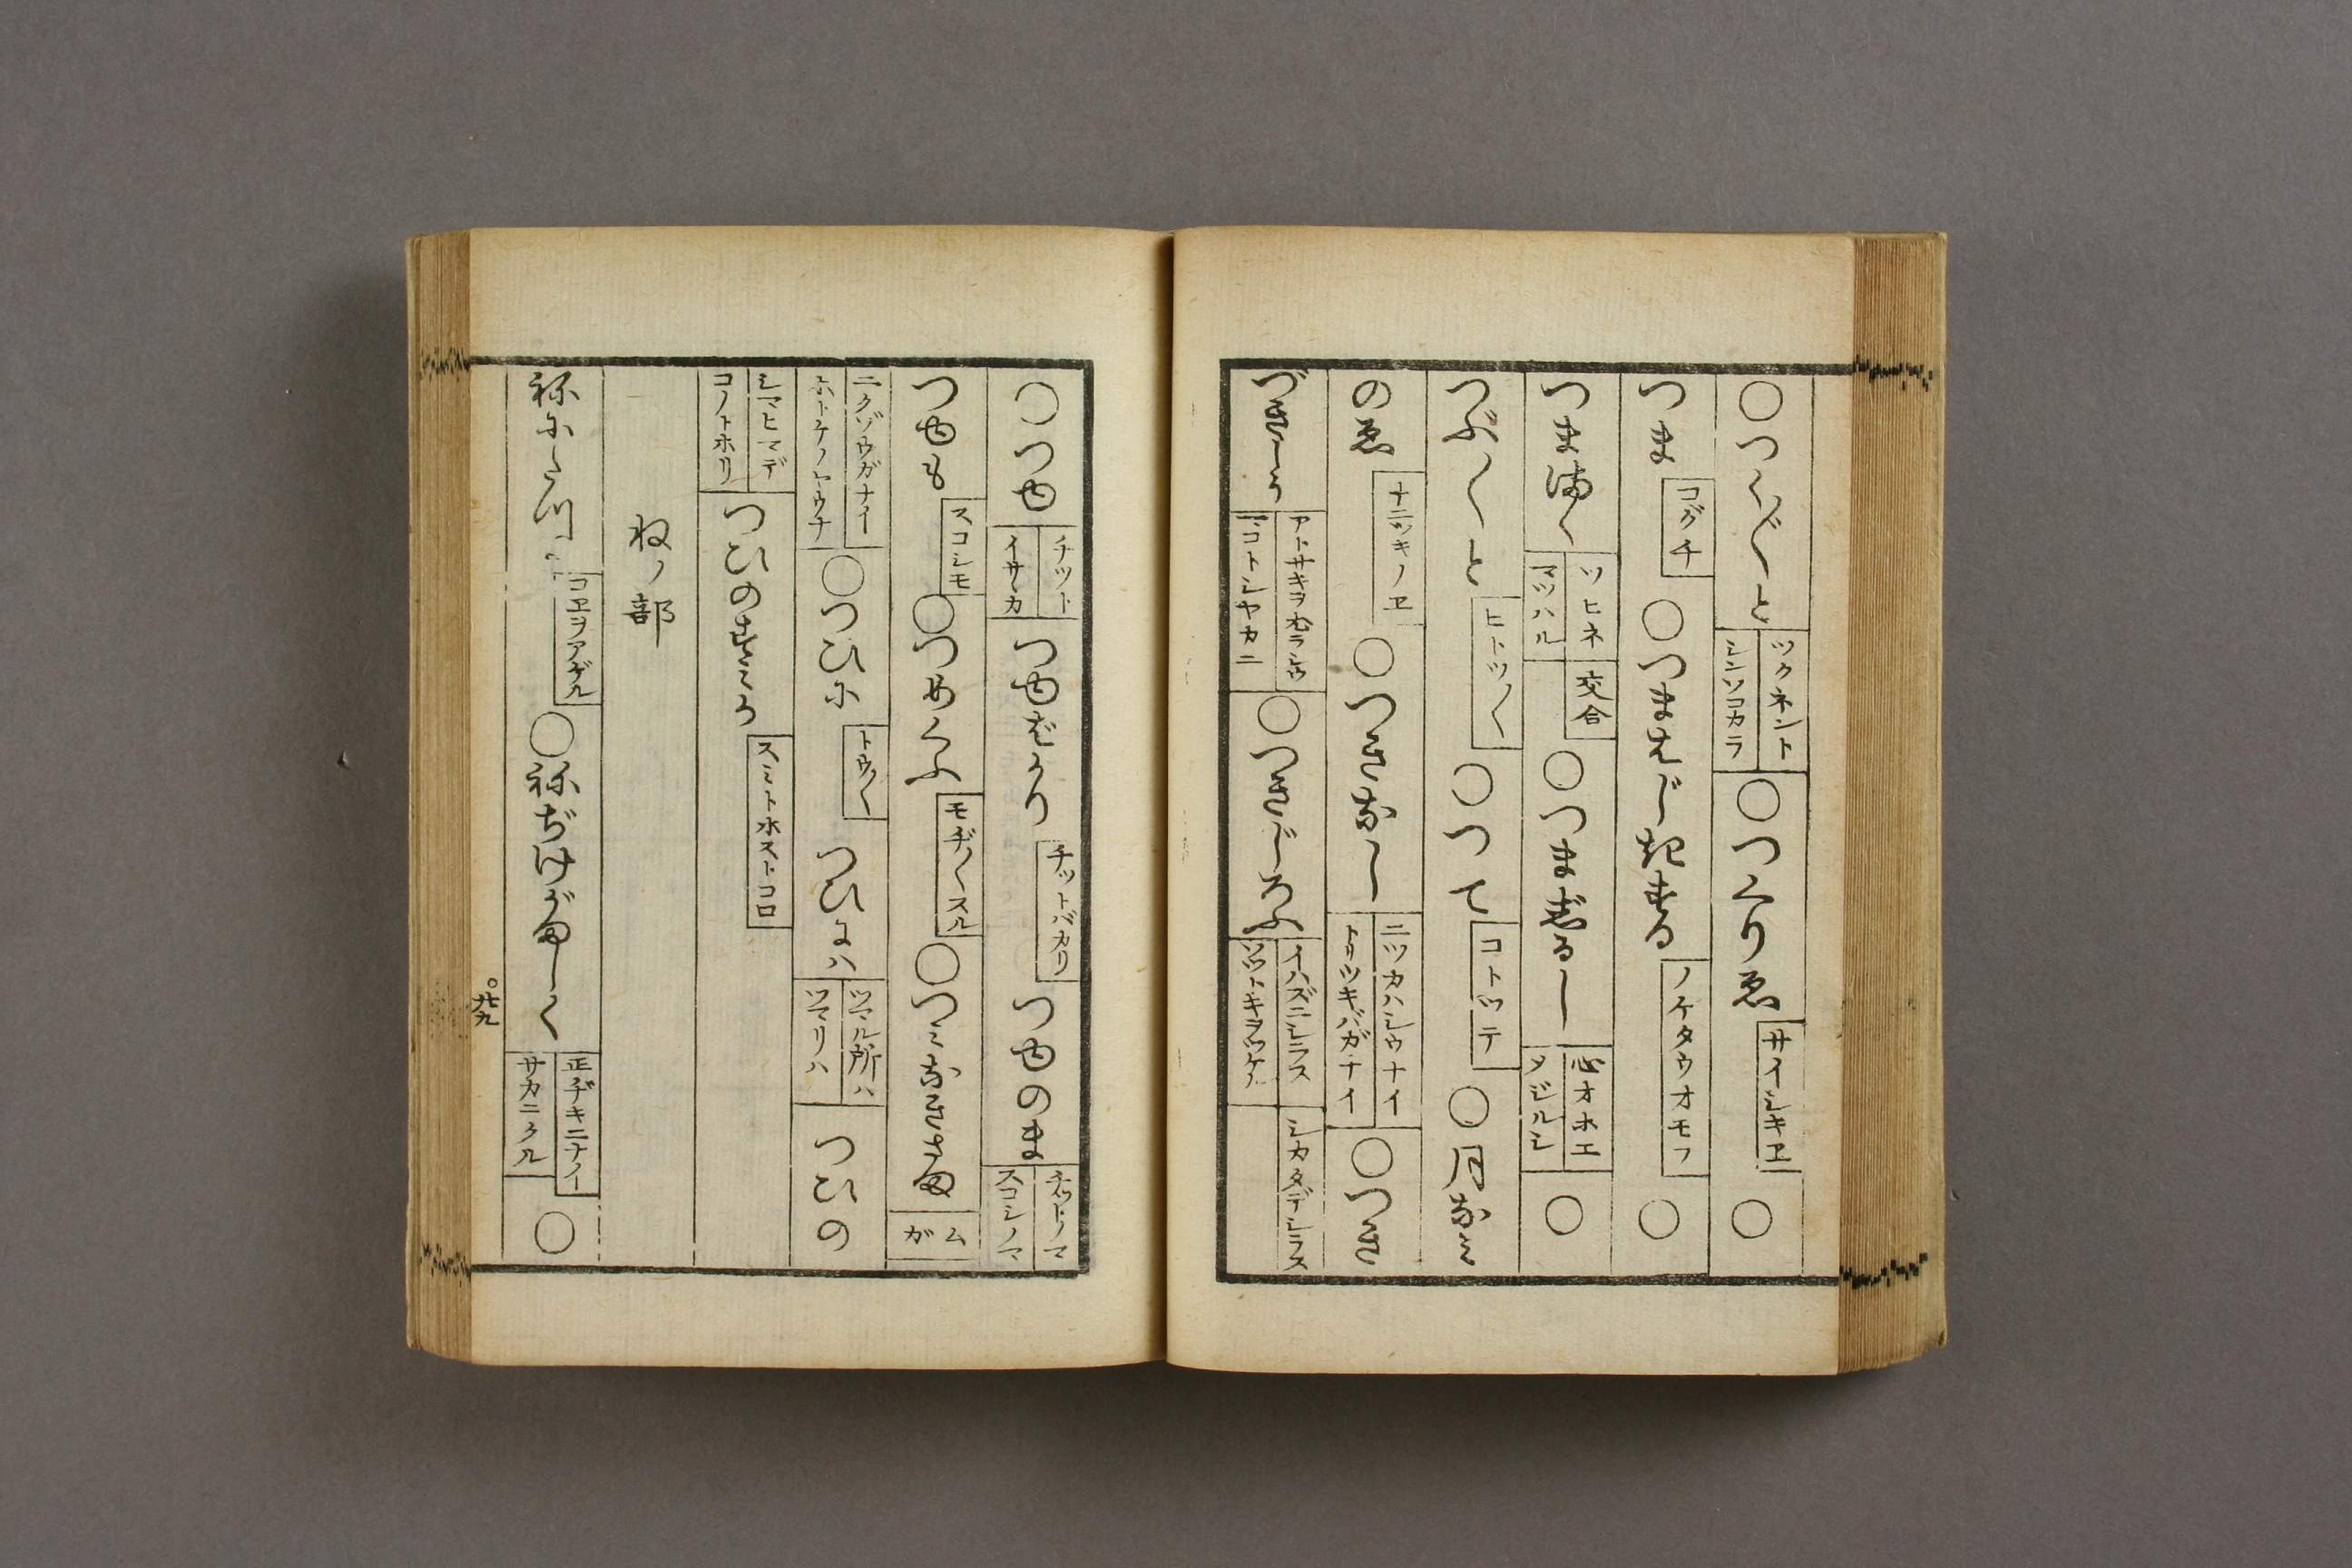 ○つく〴〵と ツクネント シンソコカラ ○つくりゑ サイシキヱ ○
つま コグチ ○つまはじきする ノケタウオモフ ○
つまぬく ソヒネ マツハル 交合 ○つまじるし 心オホエ メジルシ ○
つぶ〳〵と ヒトツ〳〵 ○つて コトツテ ○月なみ
のゑ ナニツキノヱ ○つきなし ニツカハシウナイ トリツキバガナイ ○つき
づきしう マコトシヤカニ ○つきじろふ イハズニシラス ソツトキヲツケル シカタデシラス
○つゆ チツト イサヽカ つゆばかり チツトバカリ つゆのま チツトノマ スコシノマ
つゆも スコシモ ○つめくふ モヂ〳〵スル ○つみなきさま ムガ
ニクゾウガナイ ホトケノヤウナ ○つひに トウ〳〵 つひには ツマル所ハ ツマリハ つひの
シマヒマデ コノトホリ つひのすみか スミトホストコロ
ねノ部
ねにたつ コヱヲアゲル ○ねぢけがましく 正ヂキニナイ サカニクル ○
○廿九